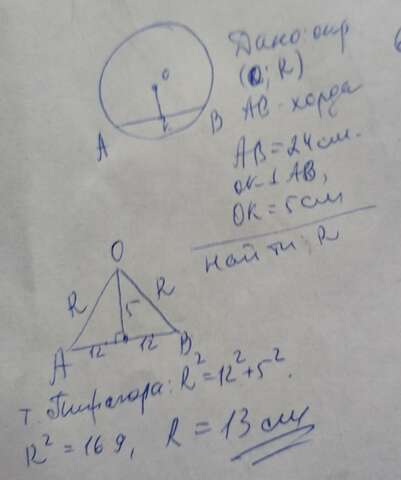 Дано: окр
(O; R)
AB - хорда
AB = 24 см.
OK ⊥ AB,
OK = 5 см
Найти: R
O
A
K
B
O
R
R
5
A
12
12
B
т. Пифагора: R² = 12² + 5².
R² = 169, R = 13 см